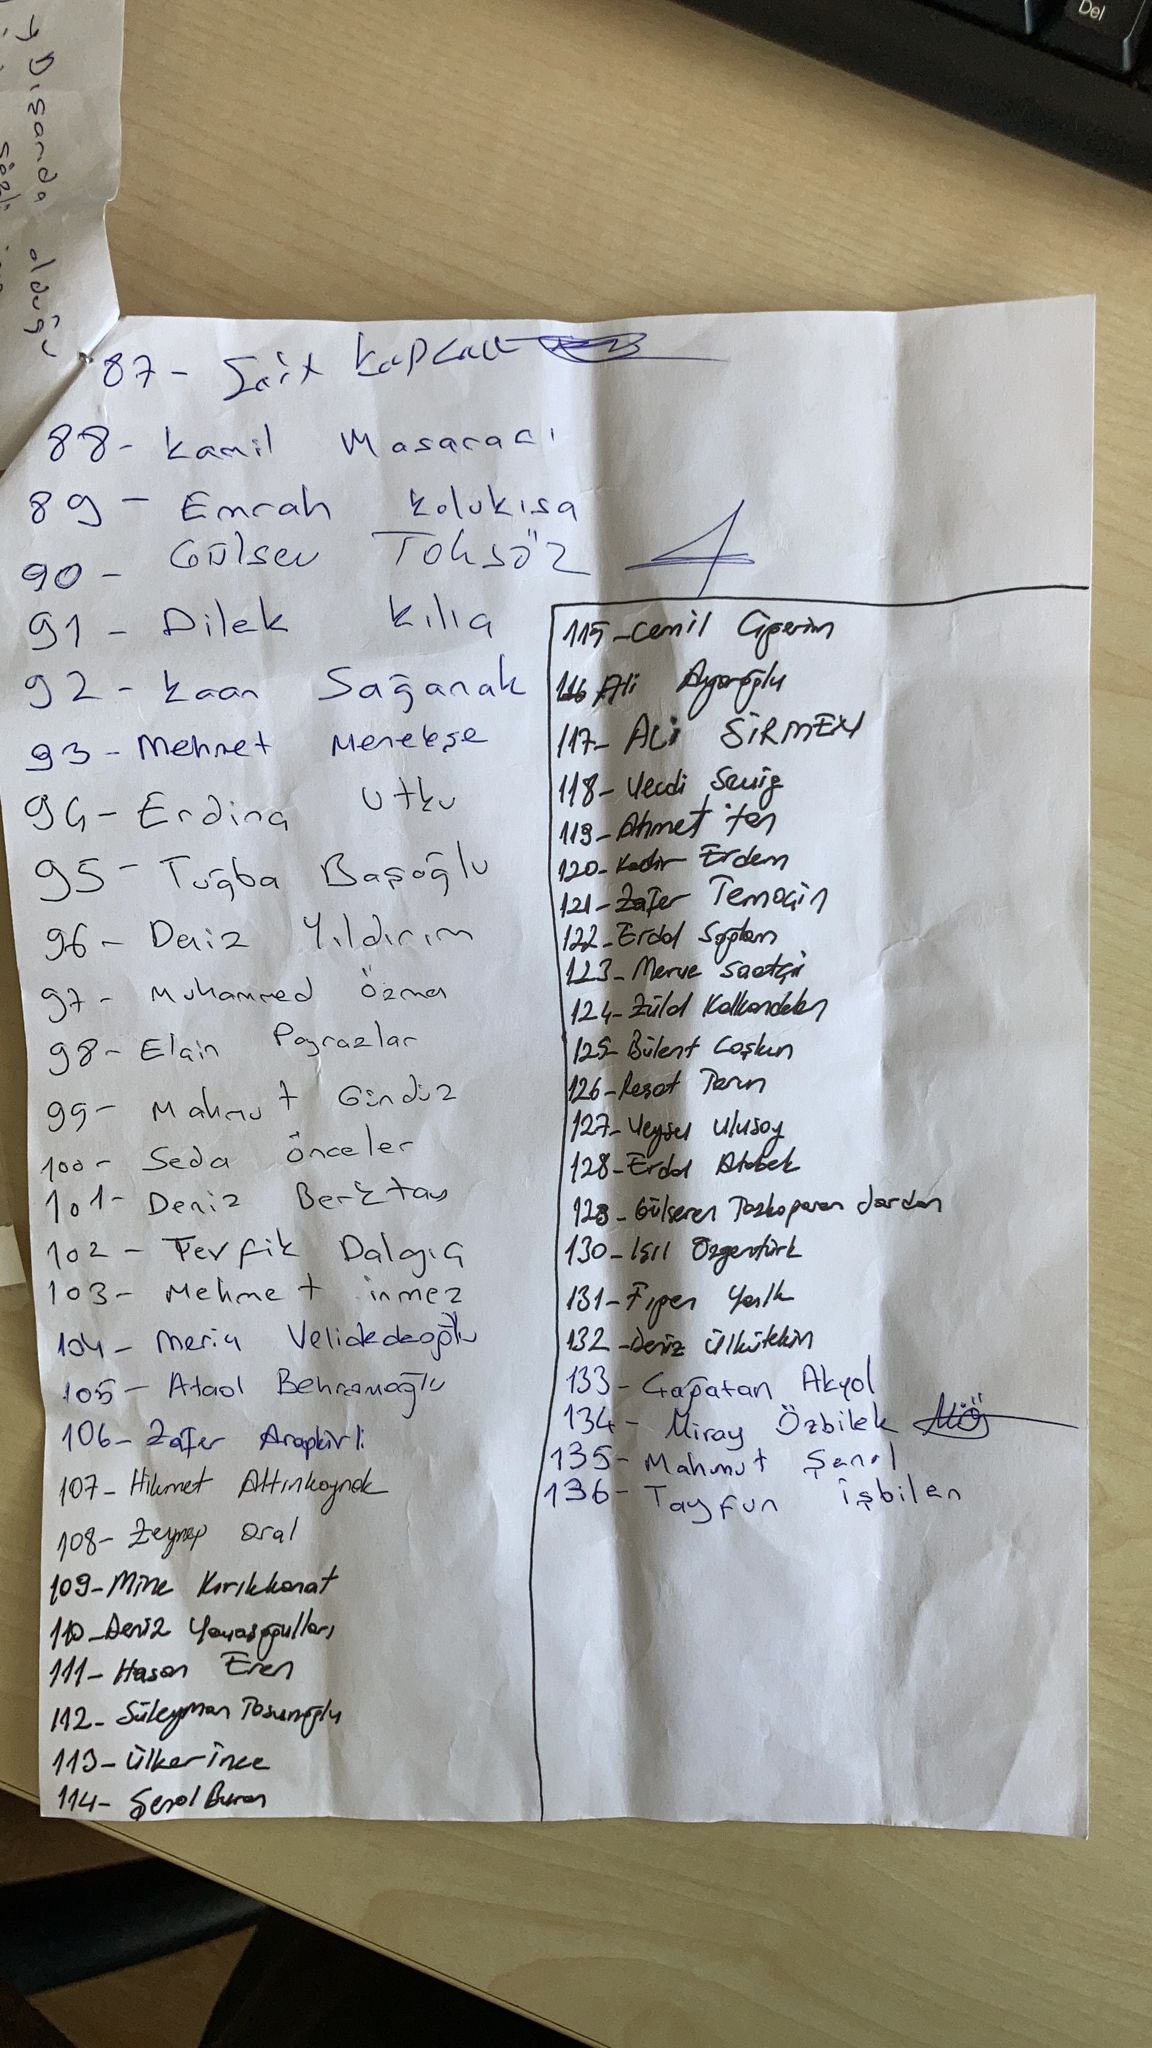 Dışarıda olduğu
87- Sait Kaplan
88- Kamil Masaracı
89- Emrah Kolukısa
90- Gülsev Toksöz
91- Dilek Kılıç
92- Kaan Sağanak
93- Mehmet Menekşe
94- Erdinç Utku
95- Tuğba Başoğlu
96- Deniz Yıldırım
97- Muhammed Özmen
98- Elçin Poyrazlar
99- Mahmut Gündüz
100- Seda Önceler
101- Deniz Berktay
102- Tevfik Dalgıç
103- Mehmet İnmez
104- Meriç Velidedeoğlu
105- Ataol Behramoğlu
106- Zafer Arapkirli
107- Hikmet Altınkaynak
108- Zeynep Oral
109- Mine Kırıkkanat
110- Deniz Yavaşoğulları
111- Hasan Eren
112- Süleyman Tosunoğlu
113- Ülker İnce
114- Şenol Buran
4
115- Cemil Ciğerim
116 Ali Ayaroğlu
117- ALİ SİRMEN
118- Vecdi Seviğ
119- Ahmet Tan
120- Kadir Erdem
121- Zafer Temoçin
122- Erdal Sağlam
123- Merve Saatçi
124- Zülal Kalkandelen
125- Bülent Coşkun
126- Reşat Tarım
127- Veysel Ulusoy
128- Erdal Atabek
129- Gülseren Tozkoparan Jordan
130- Işıl Özgentürk
131- Figen Yanık
132- Deniz Ülkütekin
133- Çağatan Akyol
134- Miray Özbilek MÖ
135- Mahmut Şenol
136- Tayfun İşbilen